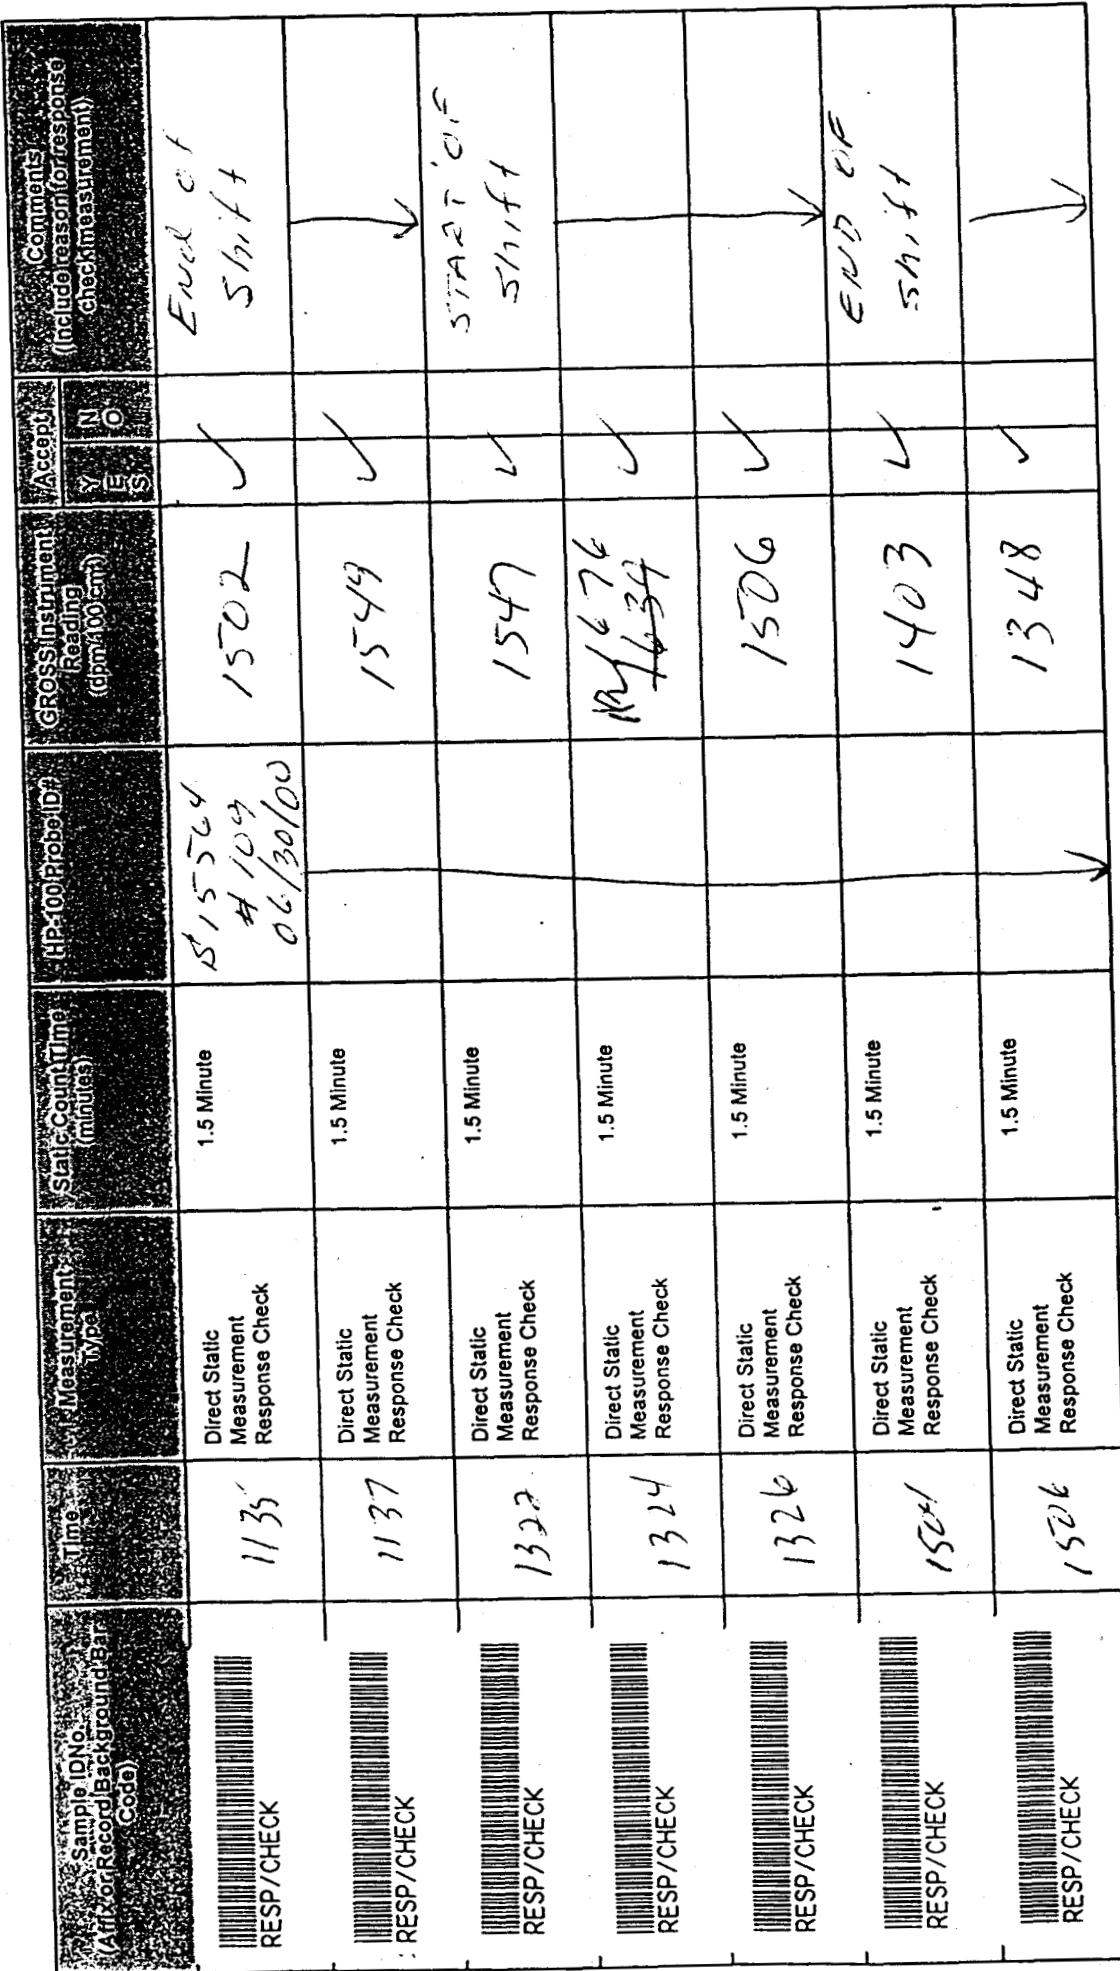 Sample ID No.
(Affix or Record Background Bar
Code)
Time
Measurement
Type
Static Count Time
(minutes)
HP-100 Probe ID#
GROSS Instrument
Reading
(dpm/100 cm²)
Accept
YES
NO
Comments
(Include reason for response
check measurement)
RESP/CHECK
1135
Direct Static
Measurement
Response Check
1.5 Minute
15564
#109
06/30/00
1502
✓
End of
Shift
RESP/CHECK
1137
Direct Static
Measurement
Response Check
1.5 Minute
1549
✓
RESP/CHECK
1322
Direct Static
Measurement
Response Check
1.5 Minute
1547
✓
START OF
Shift
RESP/CHECK
1324
Direct Static
Measurement
Response Check
1.5 Minute
1634
✓
RESP/CHECK
1326
Direct Static
Measurement
Response Check
1.5 Minute
1506
✓
RESP/CHECK
1504
Direct Static
Measurement
Response Check
1.5 Minute
1403
✓
END OF
Shift
RESP/CHECK
1506
Direct Static
Measurement
Response Check
1.5 Minute
1348
✓